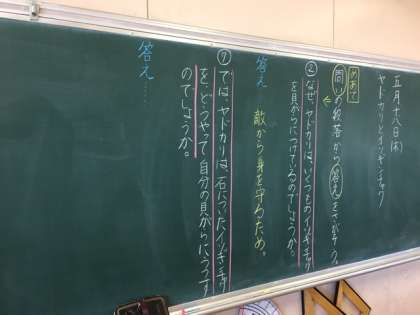 五月十八日(木)
ヤドカリとイソギンチャク
めあて
問いの段落から答えをさがそう。
②なぜ、ヤドカリは、いくつものイソギンチャク
を貝がらにつけているのでしょうか。
答え 敵から身を守るため。
⑦では、ヤドカリは、石についたイソギンチャク
を、どうやって、自分の貝がらにうつす
のでしょうか。
答え……